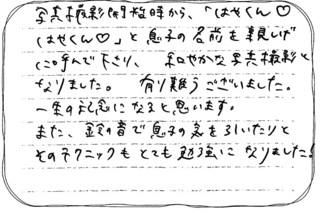 写真撮影開始時から、「はせくん♡
はせくん♡」と息子の名前を親しげ
に呼んで下さり、和やかな写真撮影と
なりました。有り難うございました。
一生の記念になると思います。
また、鈴の音で息子の気を引いたりと
そのテクニックもとても勉強になりました!